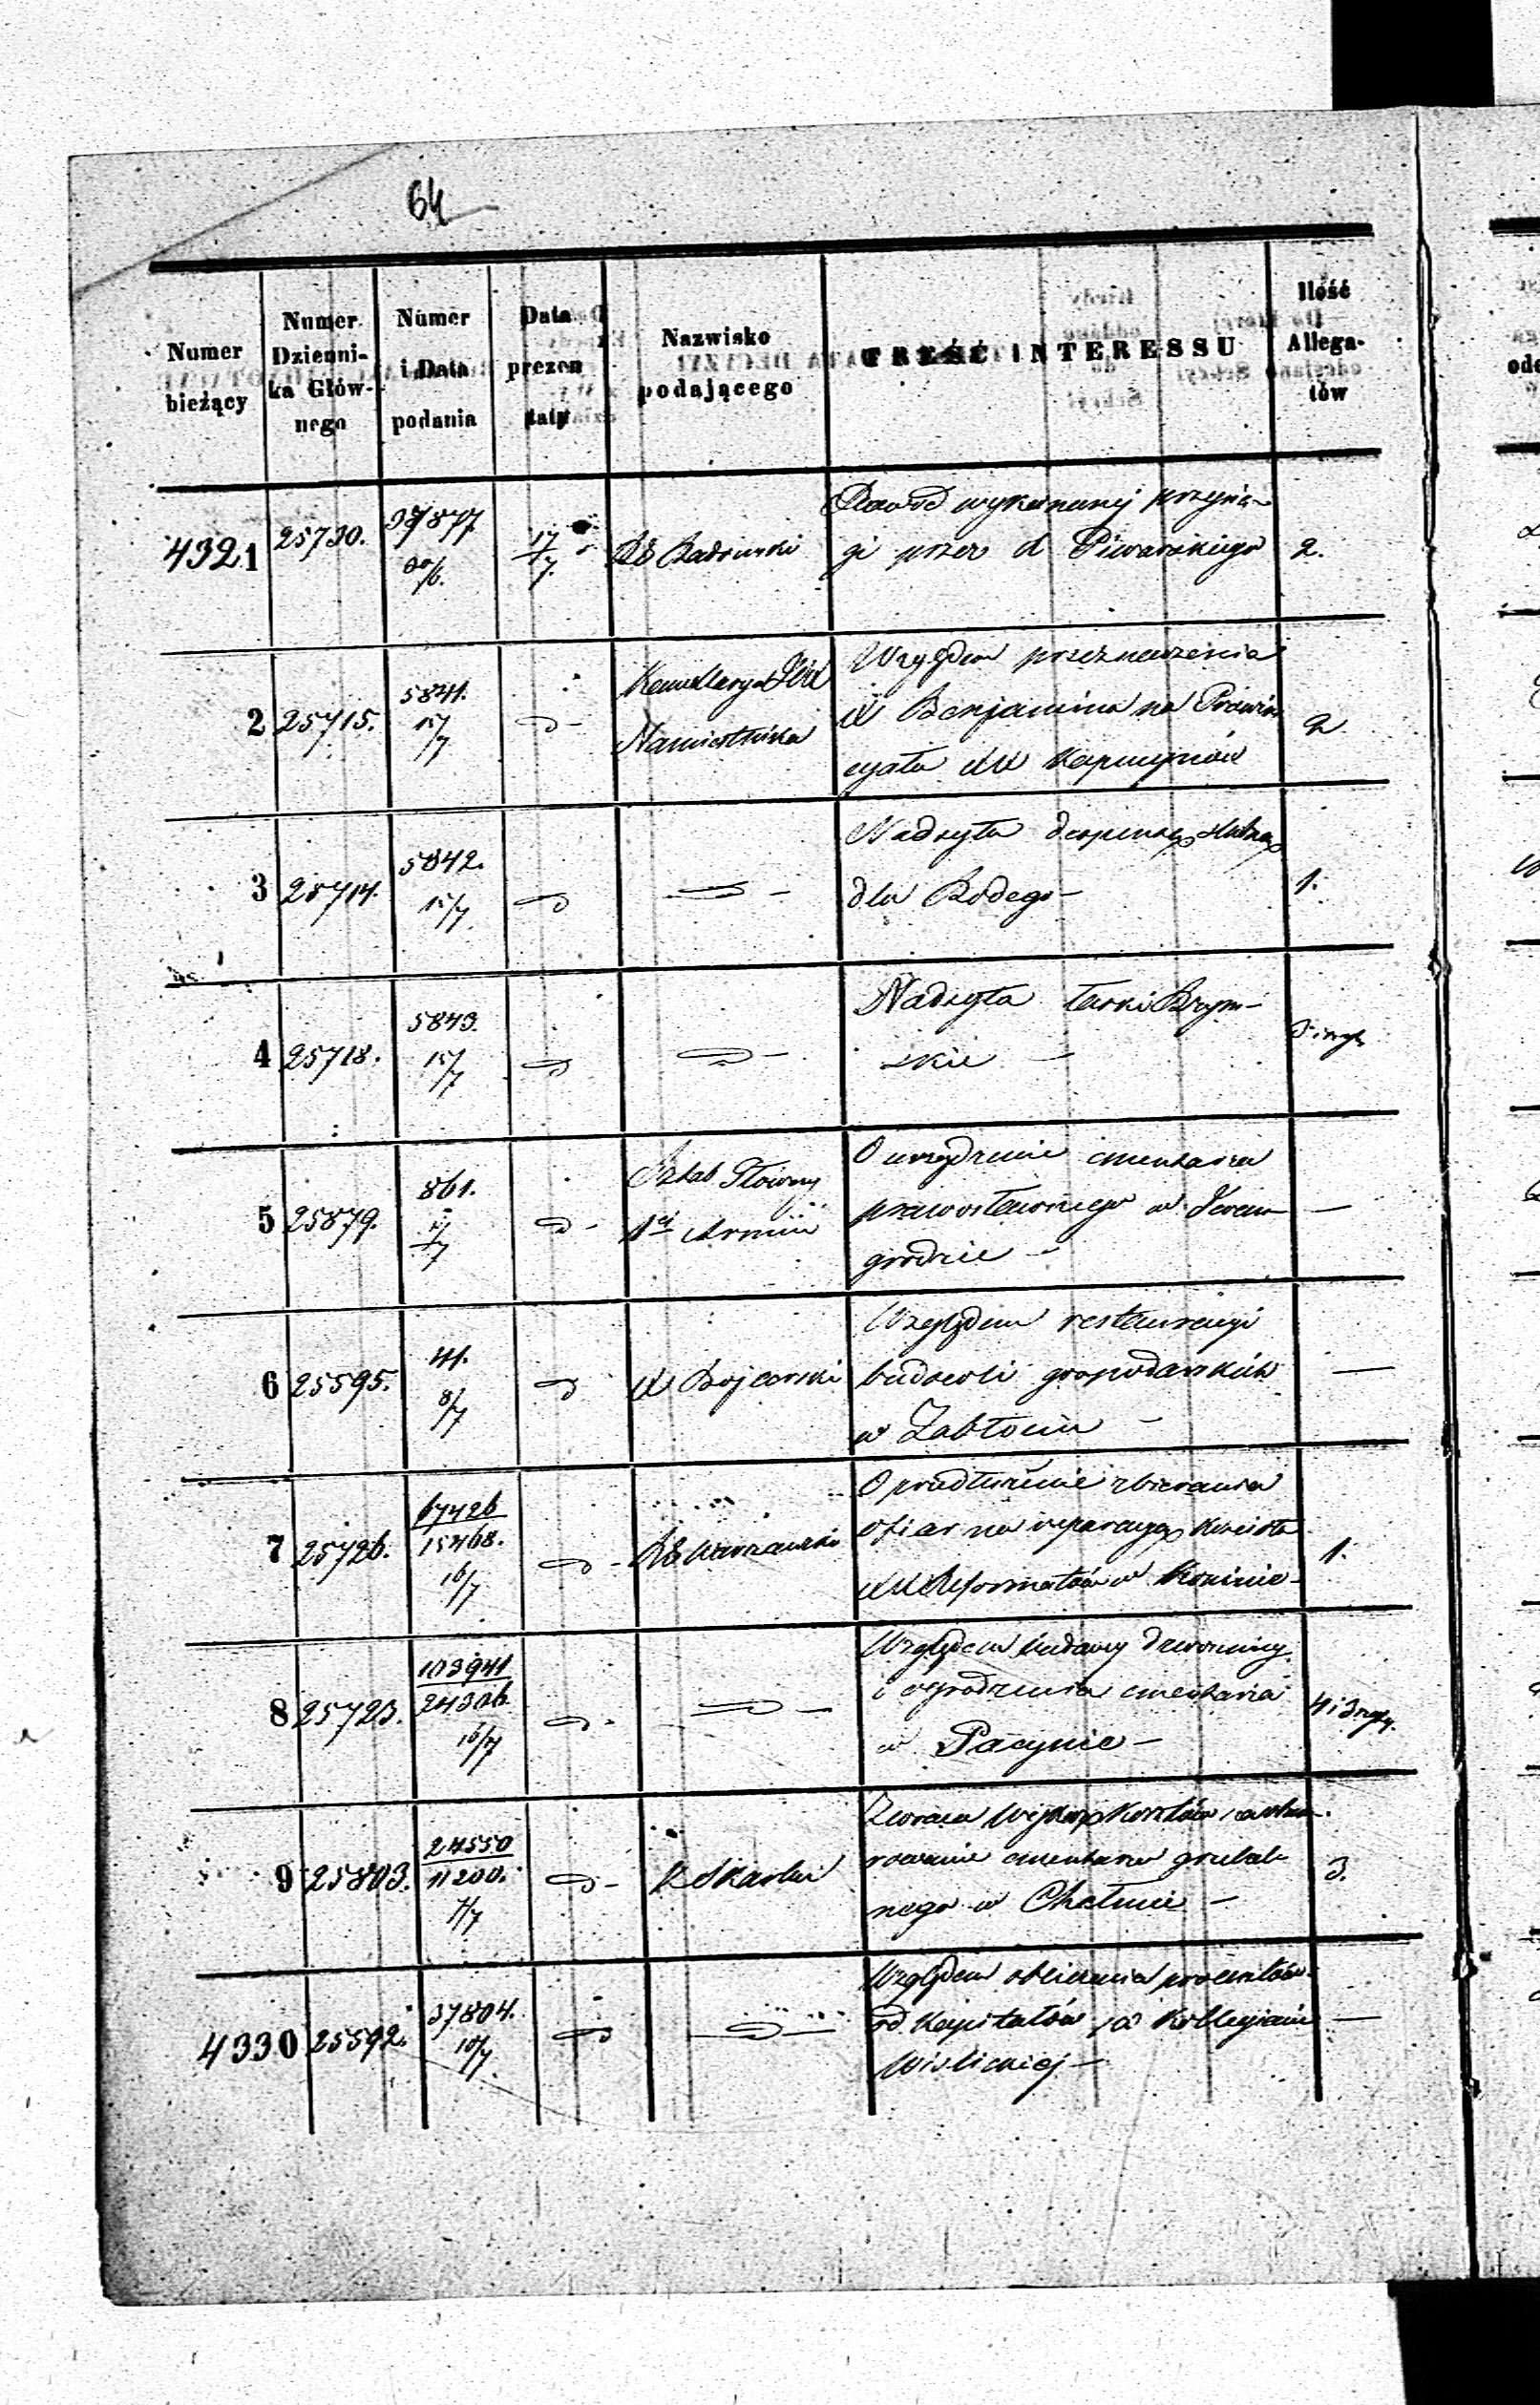 64
Numer bieżący
Numer Dzienni-ka Głów-nego
Numer i Data podania
Data prezen taty
Nazwisko podającego
TREŚĆ INTERESSU
Ilość Allega-tów
4321 25730. 17/7. RG Radomski 2.
Dowód wykonanej przysię-
gi przez X Piwarskiego
2 25715. 5841. 15/7 Kancellarya JO Namiestnika 2
Względem przeznaczenia
X Benjamina na Prowin
cyała XX Kapucynów
3 25714. 5842. 15/7. 1.
Nadsyła dyspensę
dla
4 25718. 5843. 15/7
Nadsyła
skie —
5 25879. 861. Sztab Główny 1ej Armii —
O urządzenie cmentarza
prawosławnego w Iwan
grodzie —
6 25595. 41. 8/7 X Bojarski —
Względem restauracyi
budowli gospodarskich
w Zabłociu —
7 25726. 67426/15468. 16/7 RG Warszawski 1.
O przedłużenie zbierania
ofiar na reparacyą Kościoła
XX Reformatów w Koninie —
8 25723. 103941/24306 16/7 4 i 3
Względem budowy dzwonnicy
i ogrodzenia cmentarza
w Pacynie —
9 25803. 24550/11200. 3.
Zwraca Wykaz Kosztów
rowanie cmentarza grzebal
nego w Chełmie —
4330 25592. 37804. 10/7. —
Względem obliczenia procentów
od Kapitałów po Kollegiacie
Wislickiej —